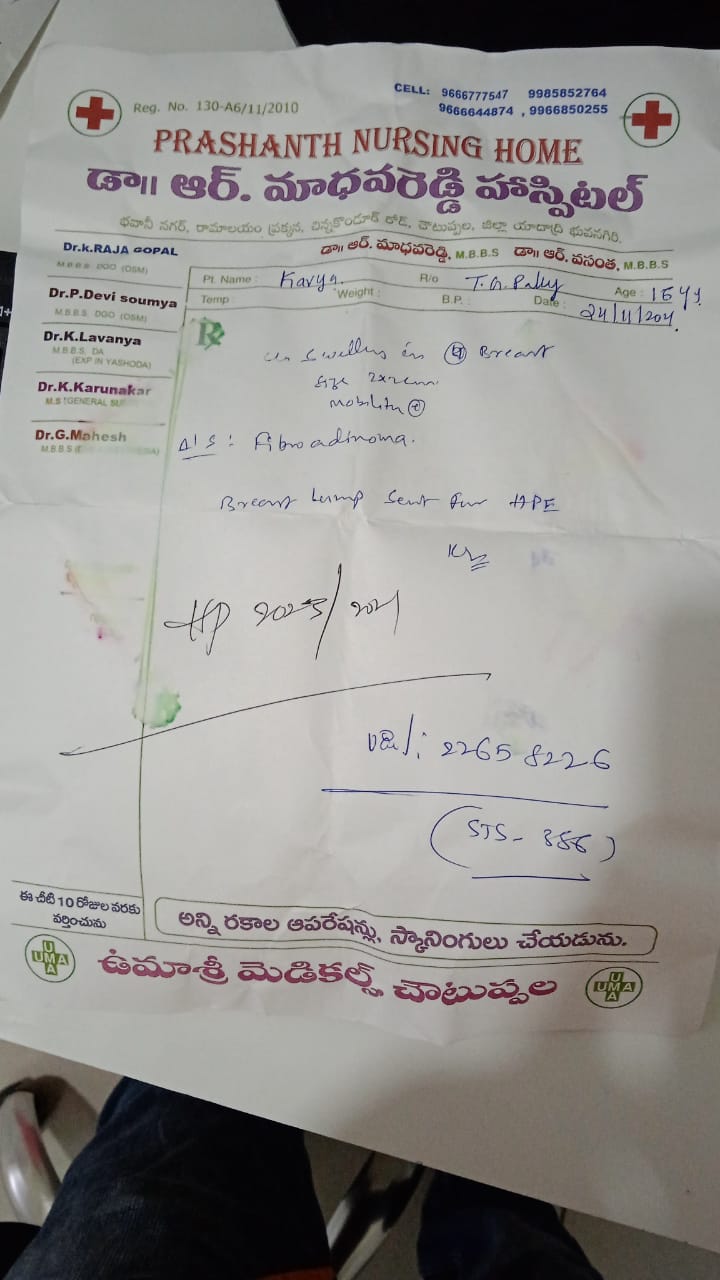 Reg. No. 130-A6/11/2010
CELL: 9666777547 9985852764
9666644874 , 9966850255
PRASHANTH NURSING HOME
డా॥ ఆర్. మాధవరెడ్డి హాస్పిటల్
భవానీ నగర్, రామాలయం ప్రక్కన, చిన్నకొండూర్ రోడ్, చౌటుప్పల, జిల్లా యాదాద్రి భువనగిరి.
డా॥ ఆర్. మాధవరెడ్డి, M.B.B.S డా॥ ఆర్. వసంత, M.B.B.S
Dr.k.RAJA GOPAL
M.B.B.S. DGO (OSM)
Dr.P.Devi soumya
M.B.B.S. DGO (OSM)
Dr.K.Lavanya
M.B.B.S, DA
(EXP IN YASHODA)
Dr.K.Karunakar
Dr.G.Mahesh
M.B.B.S
Pt. Name : Kavya R/o Age : 16
Temp Weight : B.P. : Date : 24/11/
Rx
in Breast
size
mobility ⊕
Fibroadinoma.
Breast lump sent for HPE
HP 2023/2021
2265 8226
(STS- 386)
ఈ చీటి 10 రోజుల వరకు
వర్తించును
అన్ని రకాల ఆపరేషన్లు, స్కానింగులు చేయడును.
UMA
ఉమాశ్రీ మెడికల్స్, చౌటుప్పల
UMA